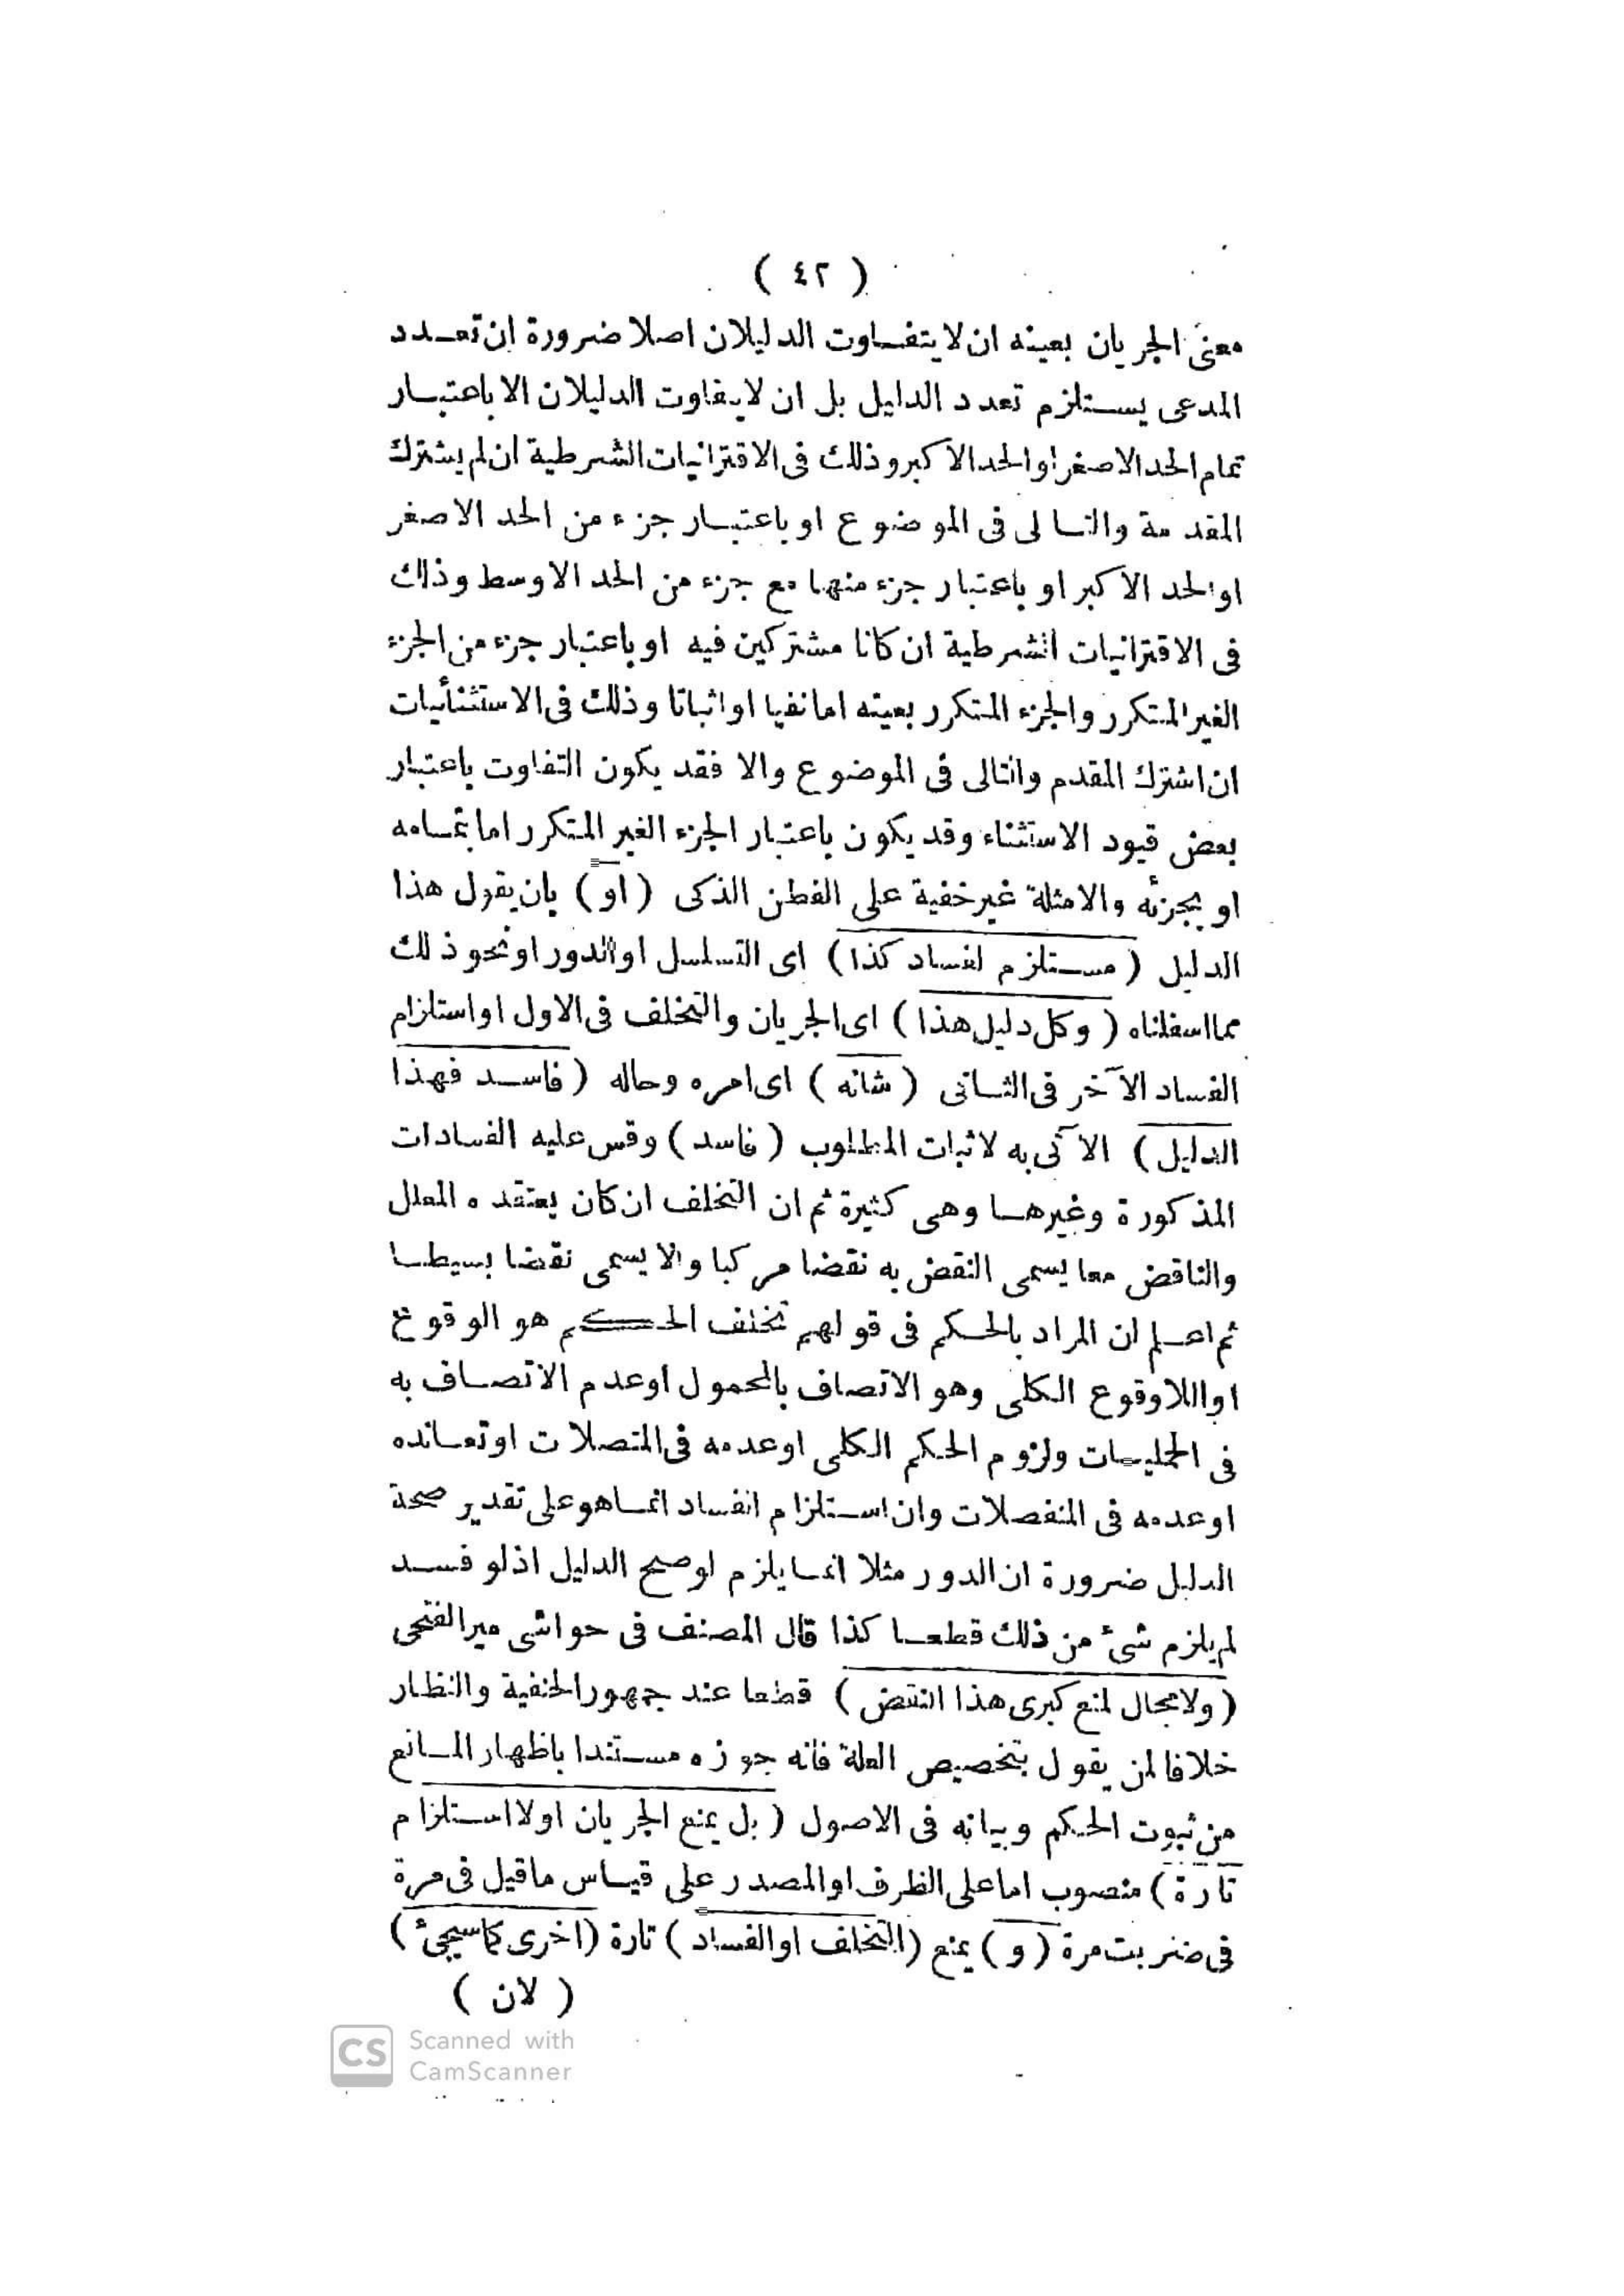 ( ٤٢ )
معنى الجريان بعينه ان لا يتفاوت الدليلان اصلا ضرورة ان تعدد
المدعى يستلزم تعدد الدليل بل ان لا يتفاوت الدليلان الا باعتبار
تمام الحد الاصغر او الحد الاكبر وذلك فى الاقترانيات الشرطية ان لم يشترك
المقدمة والتالى فى الموضوع او باعتبار جزء من الحد الاصغر
او الحد الاكبر او باعتبار جزء منهما مع جزء من الحد الاوسط وذلك
فى الاقترانيات الشرطية ان كانا مشتركين فيه او باعتبار جزء من الجزء
الغير المتكرر والجزء المتكرر بعينه اما نفيا او اثباتا وذلك فى الاستثنائيات
ان اشترك المقدم والتالى فى الموضوع والا فقد يكون التفاوت باعتبار
بعض قيود الاستثناء وقد يكون باعتبار الجزء الغير المتكرر اما بتمامه
او بجزئه والامثلة غير خفية على الفطن الذكى ( او ) بان يقول هذا
الدليل ( مستلزم لفساد كذا ) اى التسلسل او الدور او نحو ذلك
مما اسفلناه ( وكل دليل هذا ) اى الجريان والتخلف فى الاول او استلزام
الفساد الآخر فى الثانى ( شانه ) اى امره وحاله ( فاسد فهذا
الدليل ) الآتى به لاثبات المطلوب ( فاسد ) وقس عليه الفسادات
المذكورة وغيرها وهى كثيرة ثم ان التخلف ان كان يعتقده المعلل
والناقض معا يسمى النقض به نقضا مركبا والا يسمى نقضا بسيطا
ثم اعلم ان المراد بالحكم فى قولهم تخلف الحكم هو الوقوع
او اللاوقوع الكلى وهو الاتصاف بالمحمول او عدم الاتصاف به
فى الحمليات ولزوم الحكم الكلى او عدمه فى المتصلات او تعانده
او عدمه فى المنفصلات وان استلزام الفساد انما هو على تقدير صحة
الدليل ضرورة ان الدور مثلا انما يلزم لو صح الدليل اذ لو فسد
لم يلزم شئ من ذلك قطعا كذا قال المصنف فى حواشى مير الفتحى
( ولا مجال لمنع كبرى هذا النقض ) قطعا عند جمهور الحنفية والنظار
خلافا لمن يقول بتخصيص العلة فانه جوزه مستندا باظهار المانع
من ثبوت الحكم وبيانه فى الاصول ( بل يمنع الجريان اولا استلزام
تارة ) منصوب اما على الظرف او المصدر على قياس ما قيل فى مرة
فى ضربت مرة ( و ) يمنع ( التخلف او الفساد ) تارة ( اخرى كما سيجئ )
( لان )
CS Scanned with
CamScanner